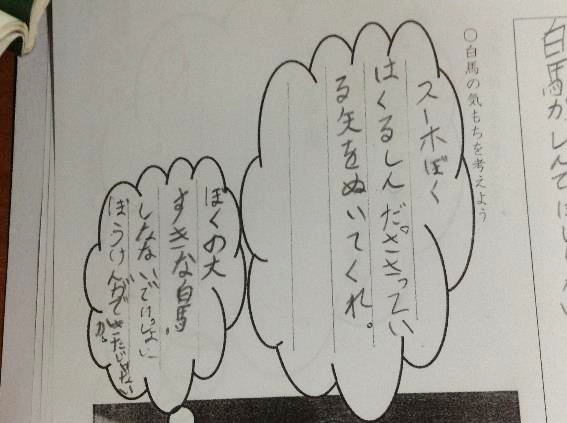 白馬がしんでほしくない
○白馬の気もちを考えよう
スーホぼく
はくるしんだ。ささってい
る矢をぬいてくれ。
ぼくの大
すきな白馬、
しなないで。いっしょに
ぼうけんができたじゃない
か。